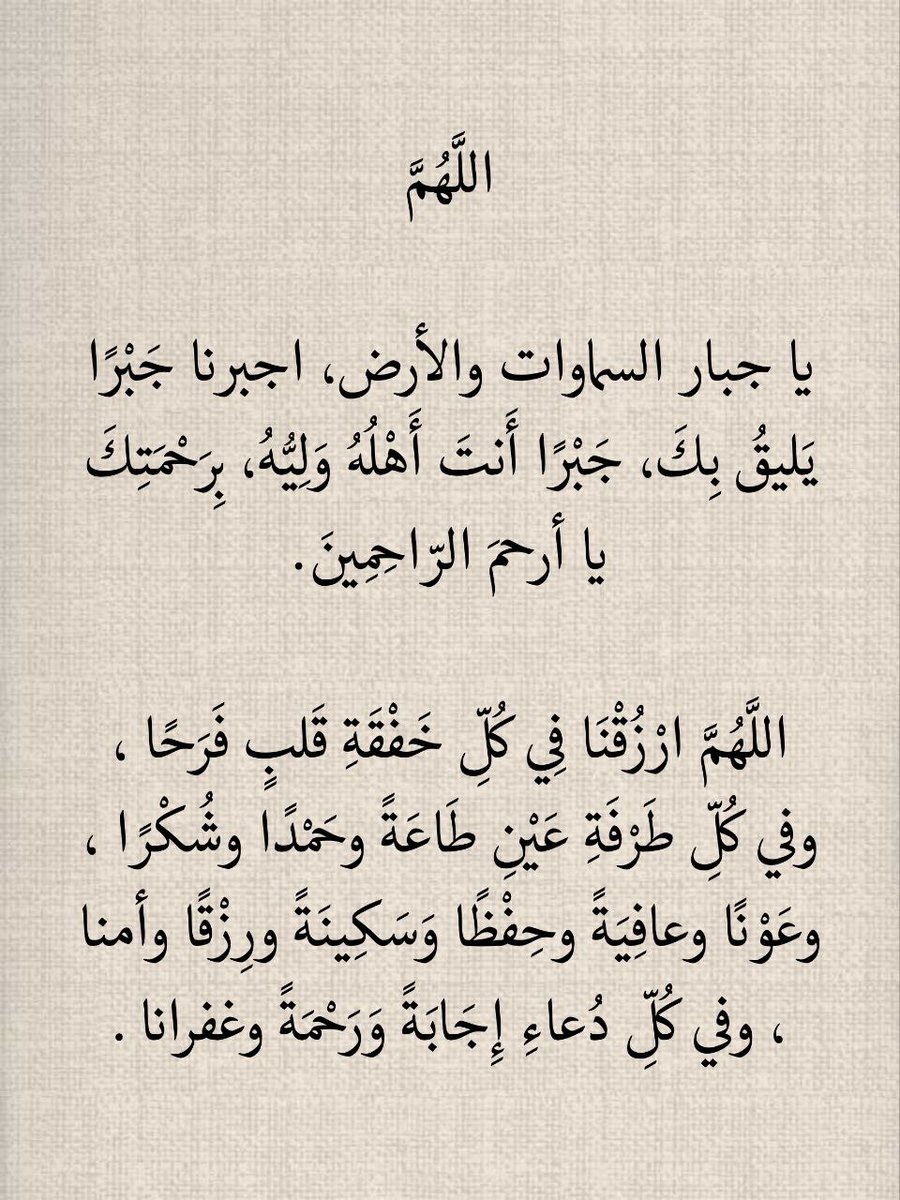 اللَّهُمَّ
يا جبار السماوات والأرض، اجبرنا جَبْرًا
يَليقُ بِكَ، جَبْرًا أَنتَ أَهْلُهُ وَلِيُّهُ، بِرَحْمَتِكَ
يا أرحمَ الرّاحِمِينَ.
اللَّهُمَّ ارْزُقْنَا فِي كُلِّ خَفْقَةِ قَلبٍ فَرَحًا ،
وفي كُلِّ طَرْفَةِ عَيْنِ طَاعَةً وحَمْدًا وشُكْرًا ،
وعَوْنًا وعافِيَةً وحِفْظًا وَسَكِينَةً ورِزْقًا وأمنا
، وفي كُلِّ دُعاءِ إِجَابَةً وَرَحْمَةً وغفرانا .